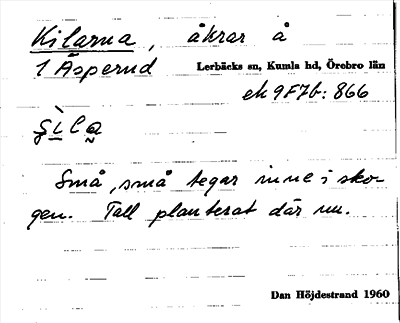 Kilarna, åkrar å
1 Äsperud Lerbäcks sn, Kumla hd, Örebro län
ek 9F7b: 866
şìla̰
Små, små tegar inne i sko-
gen. Tall planterat där nu.
Dan Höjdestrand 1960